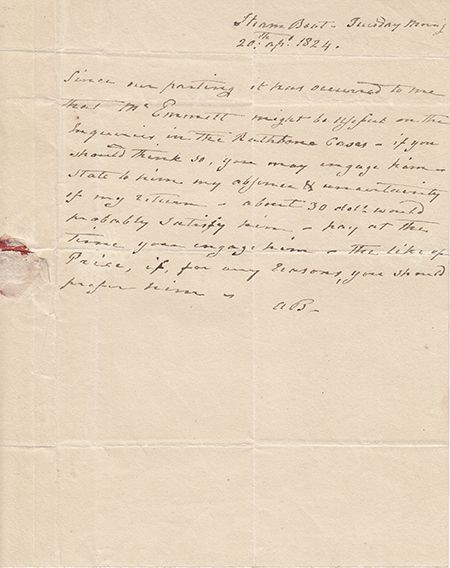 Steam Boat - Tuesday Morng
20th. Apl. 1824.
Since our parting it has occurred to me
that Mr Emmett might be useful on the
Inquiries in the Rathbone Cases - if you
should think so, you may engage him -
State to him my absence & uncertainty
of my return - about 30 dolls would
probably satisfy him - pay at the
time you engage him - the like of
Price, if, for any reasons, you should
prefer him -
AB -